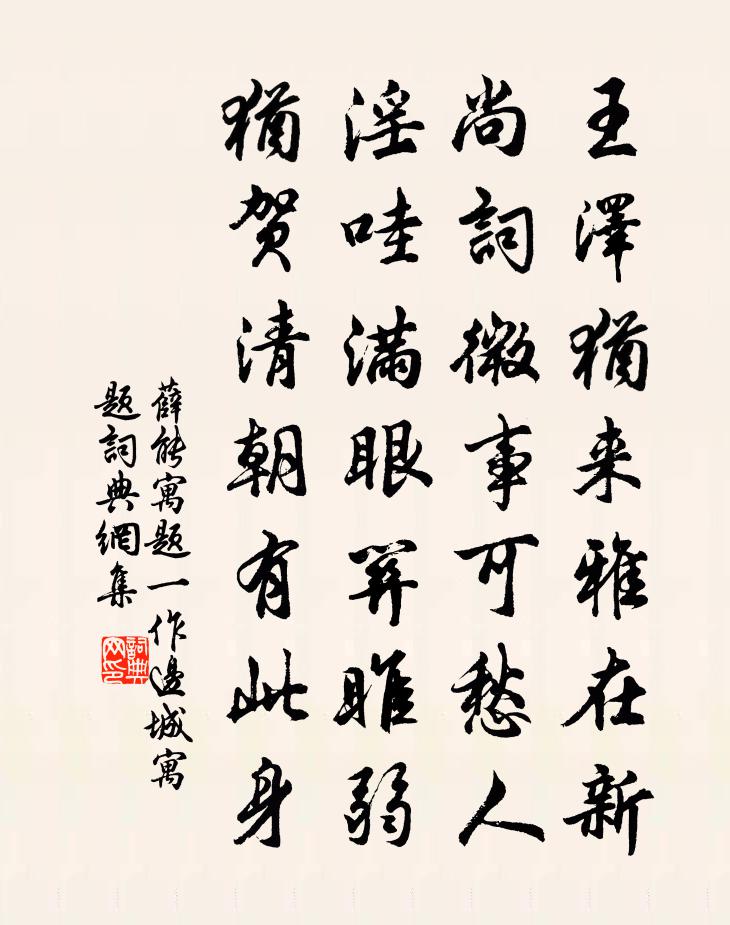 王澤猶来雅在新
尚詞微事可愁人
淫哇满眼关雎弱
猶贺清朝有此身
薛能寓题一作邊城寓
题詞典網集
詞典网印